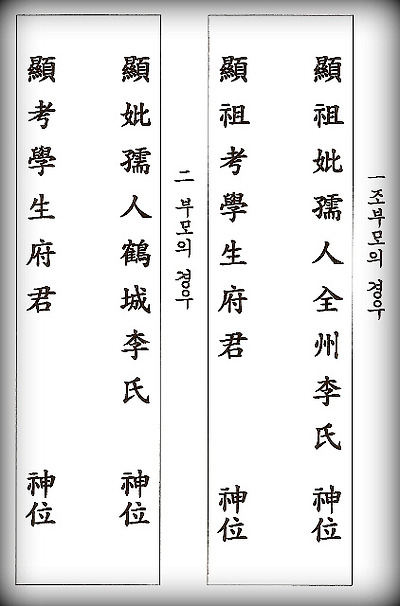 一 조부모의 경우
顯祖妣孺人全州李氏 神位
顯祖考學生府君 神位
二 부모의 경우
顯妣孺人鶴城李氏 神位
顯考學生府君 神位